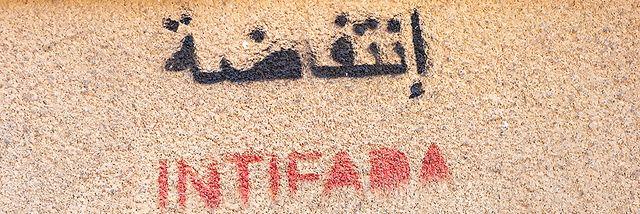 إنتفاضة
INTIFADA